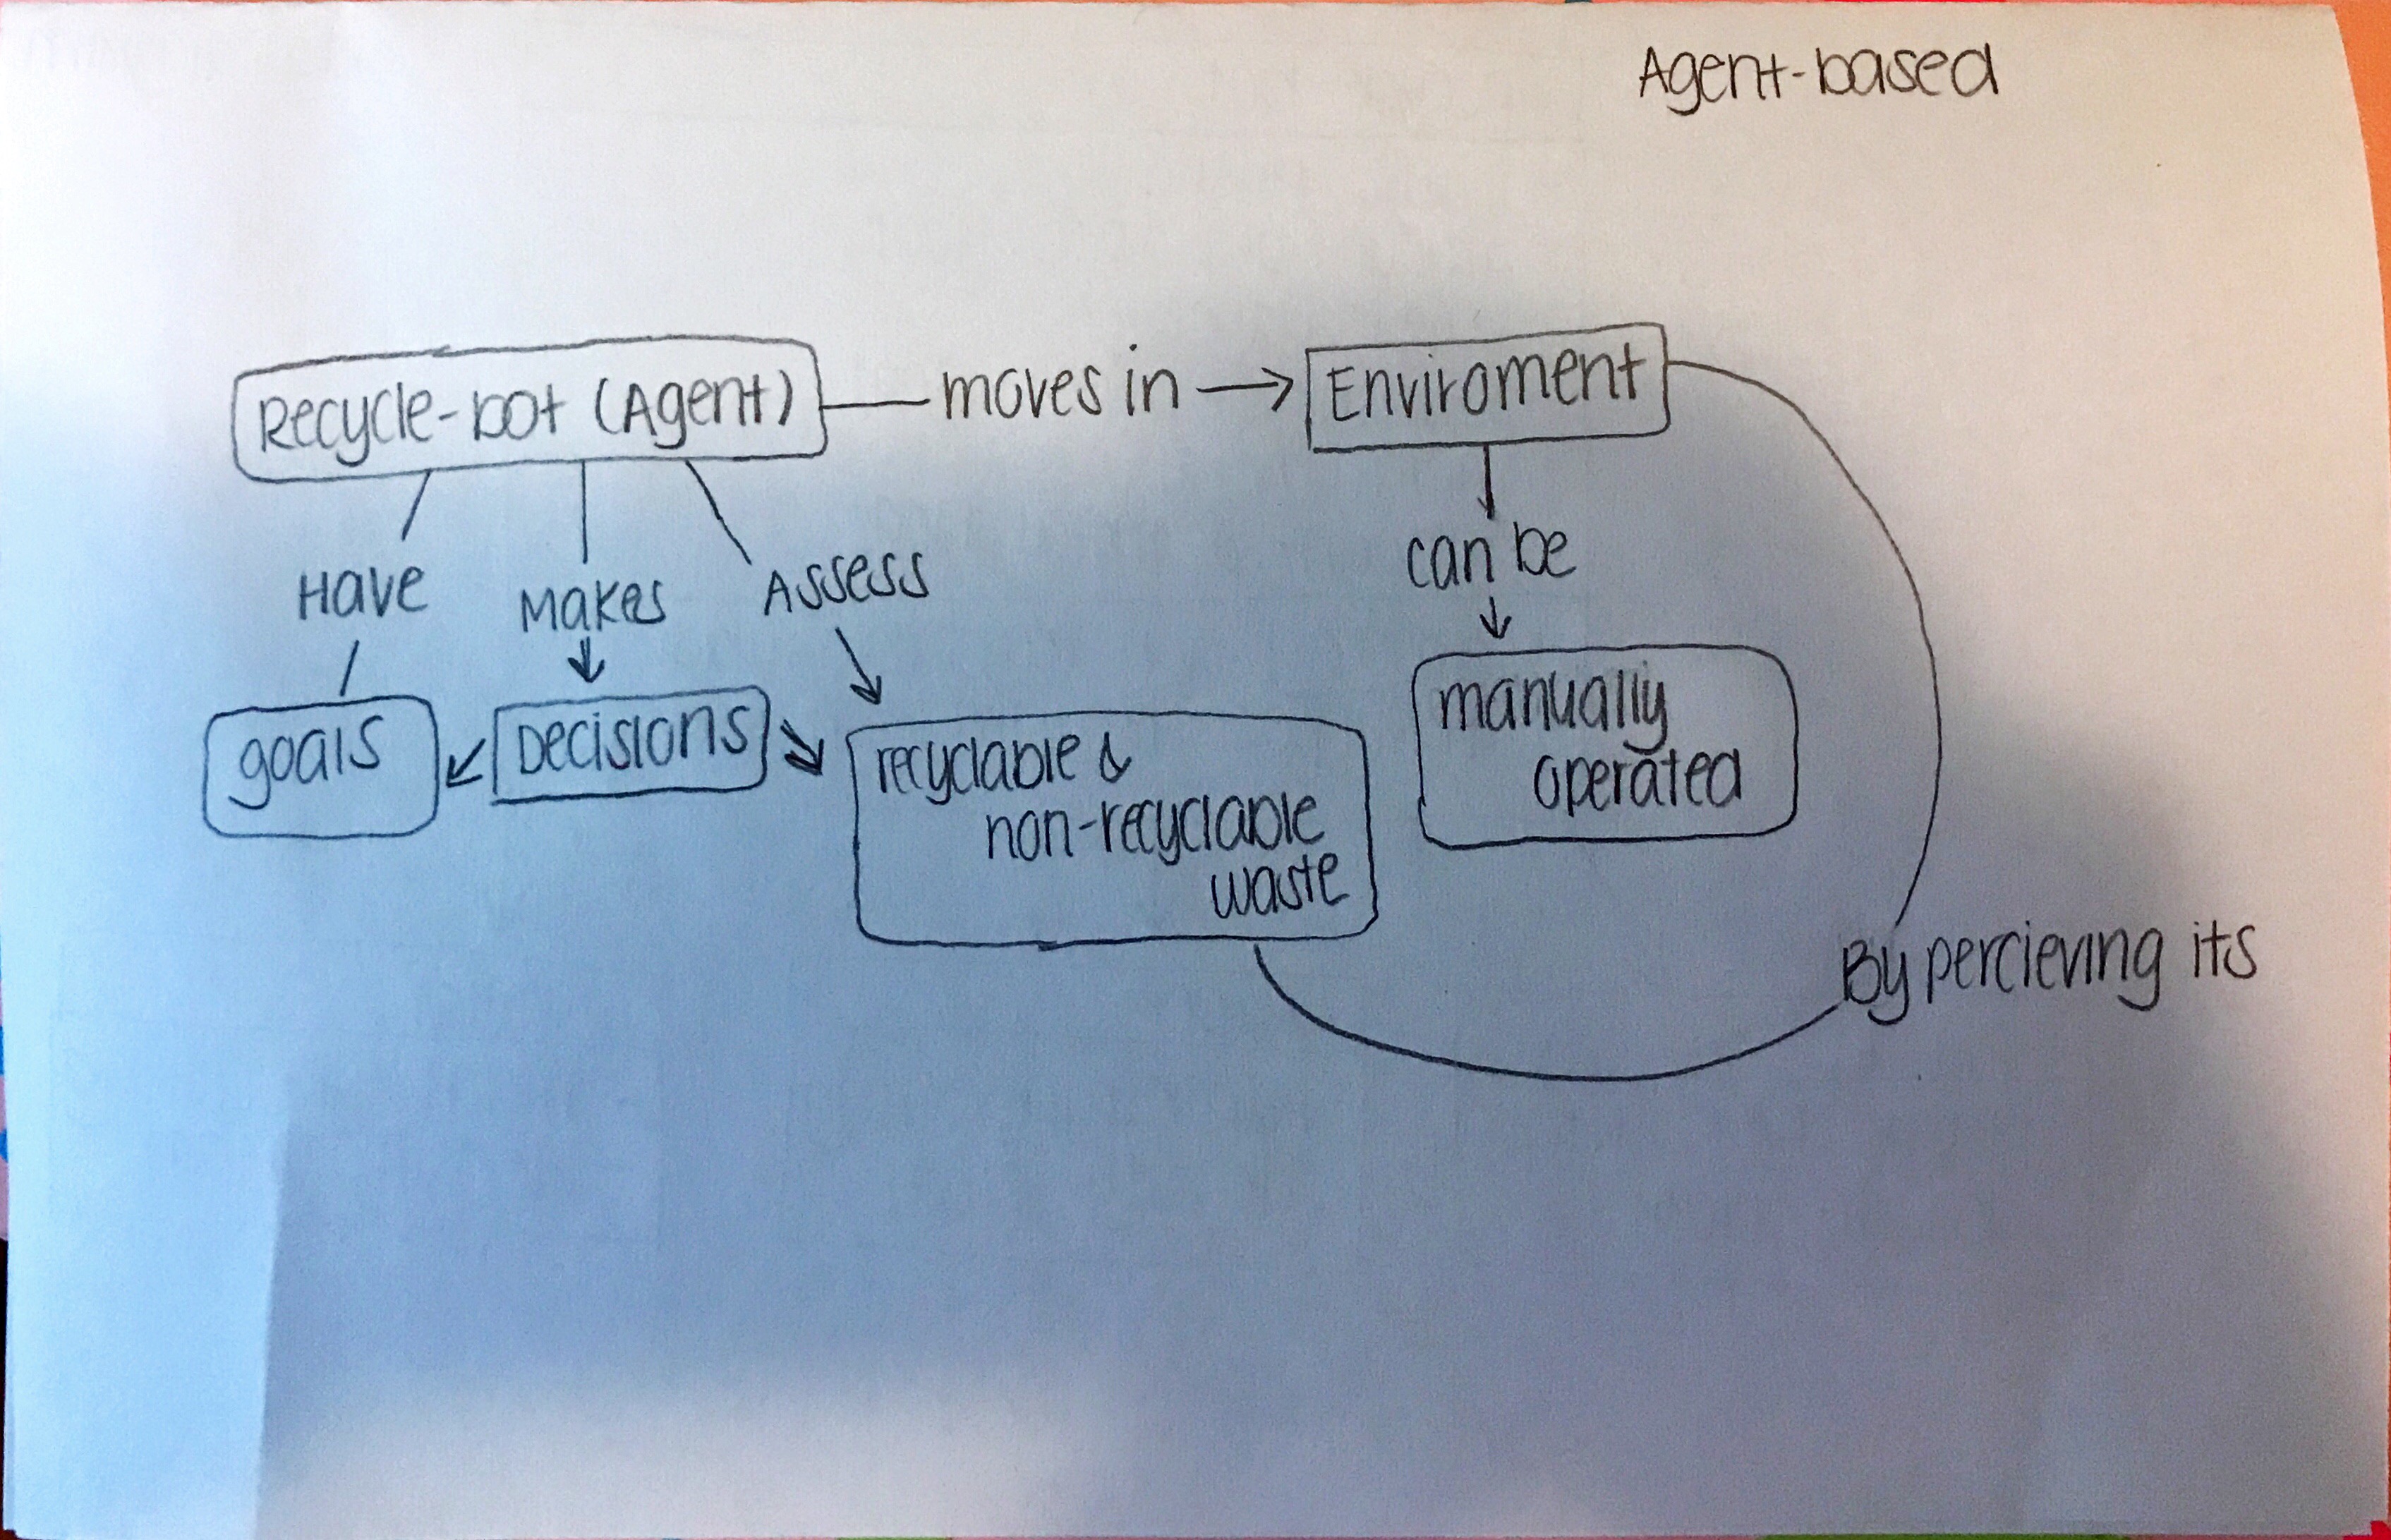 Agent-based
Recycle-bot (Agent)
moves in
Enviroment
Have
Makes
Assess
can be
goals
Decisions
recyclable &
non-recyclable
waste
manually
operated
By percieving its